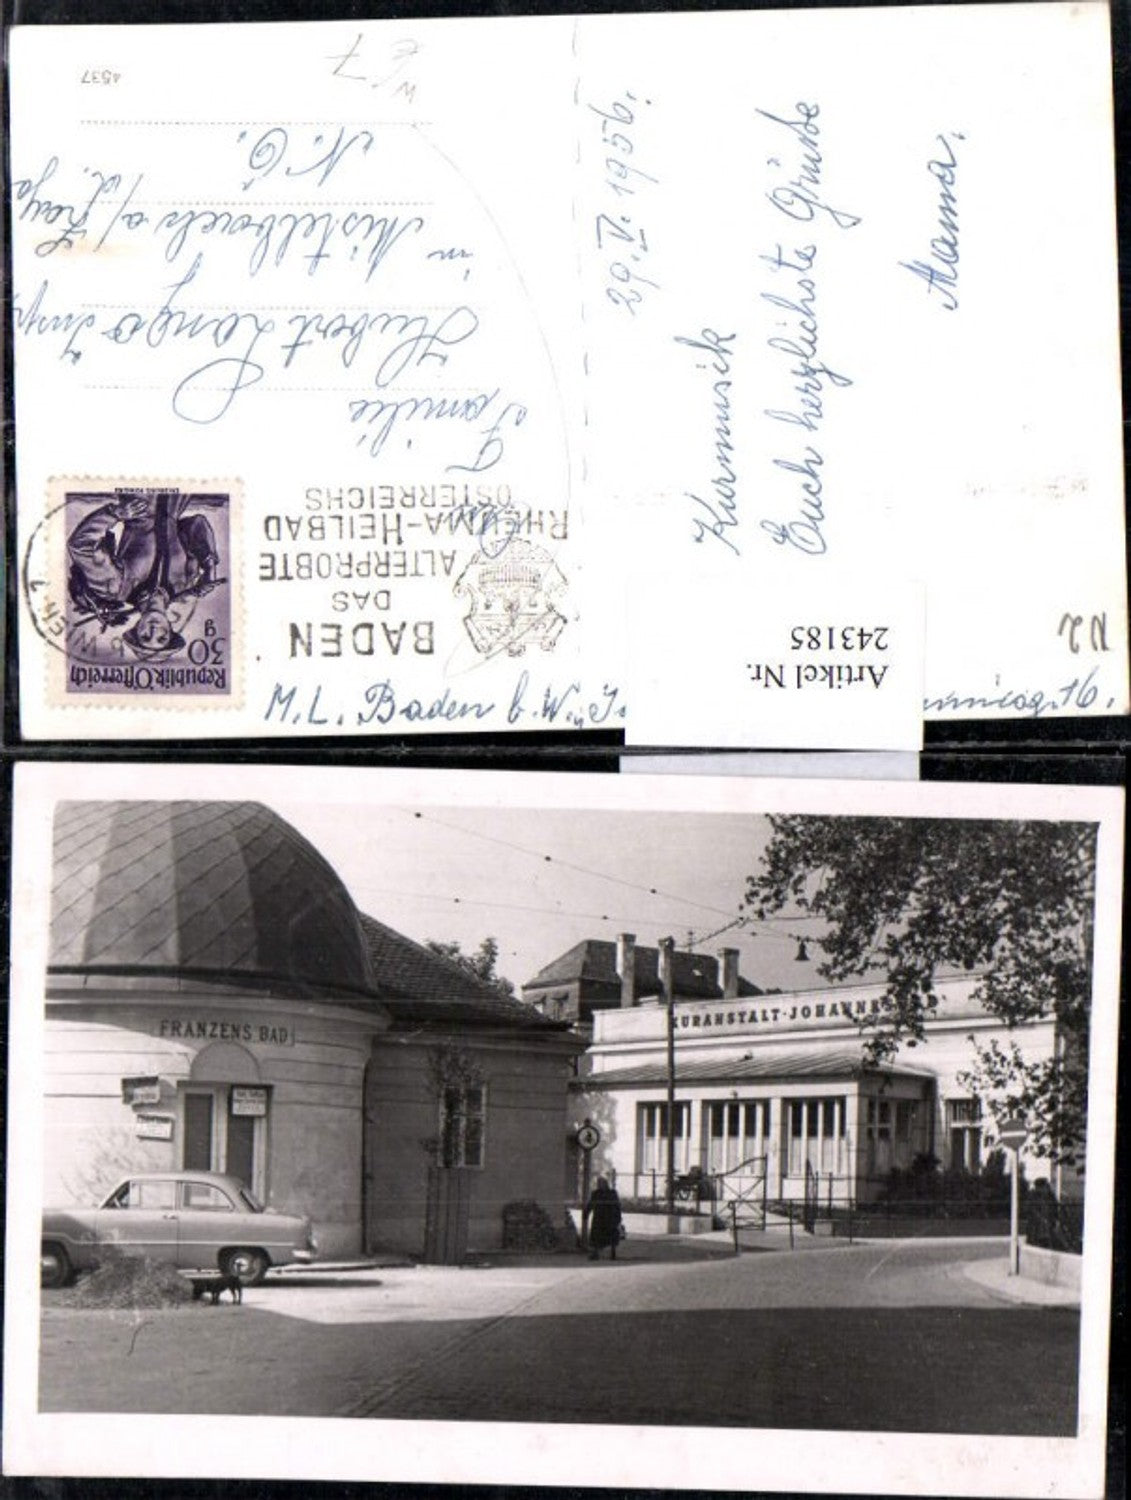 4537
W
€ 7
29. V. 1956.
Kurmusik
Euch herzlichste Grüße
Mama.
Familie
Hubert
in Mistelbach a/d. Zaya
N.Ö.
BADEN
DAS
ALTERPROBTE
RHEUMA-HEILBAD
ÖSTERREICHS
BADEN B WIEN 1
30 g
Republik Österreich
M. L. Baden b. W.,
16.
Artikel Nr.
243185
FRANZENS BAD
KURANSTALT-JOHANNESBAD